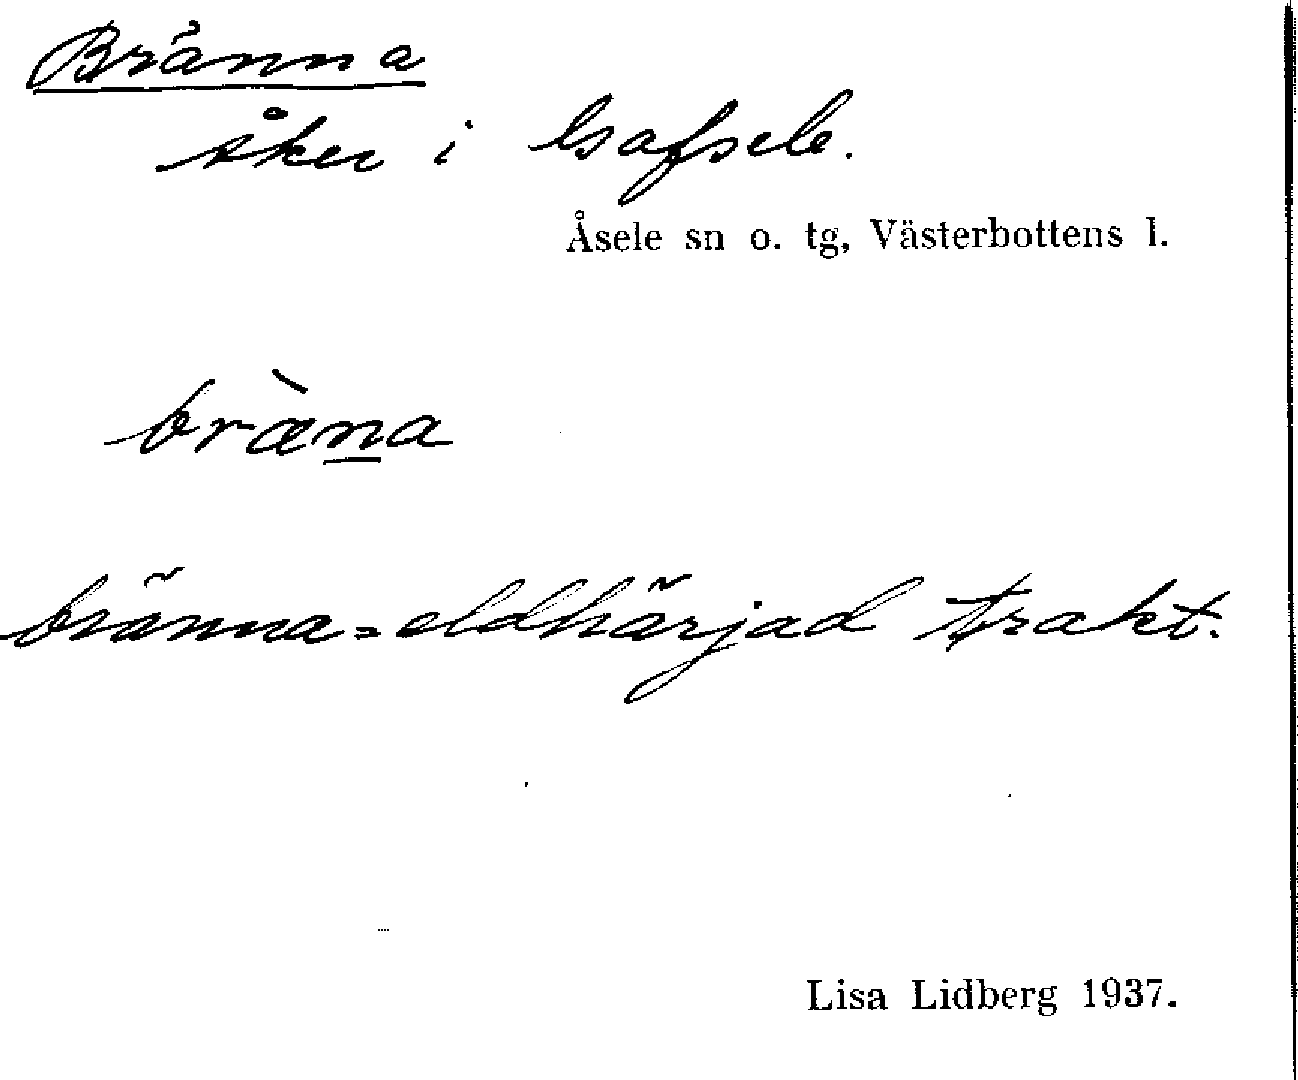 Bränna
åker i Gafsele.
Åsele sn o. tg, Västerbottens l.
bræ̀n̲a
bränna = eldhärjad trakt.
Lisa Lidberg 1937.